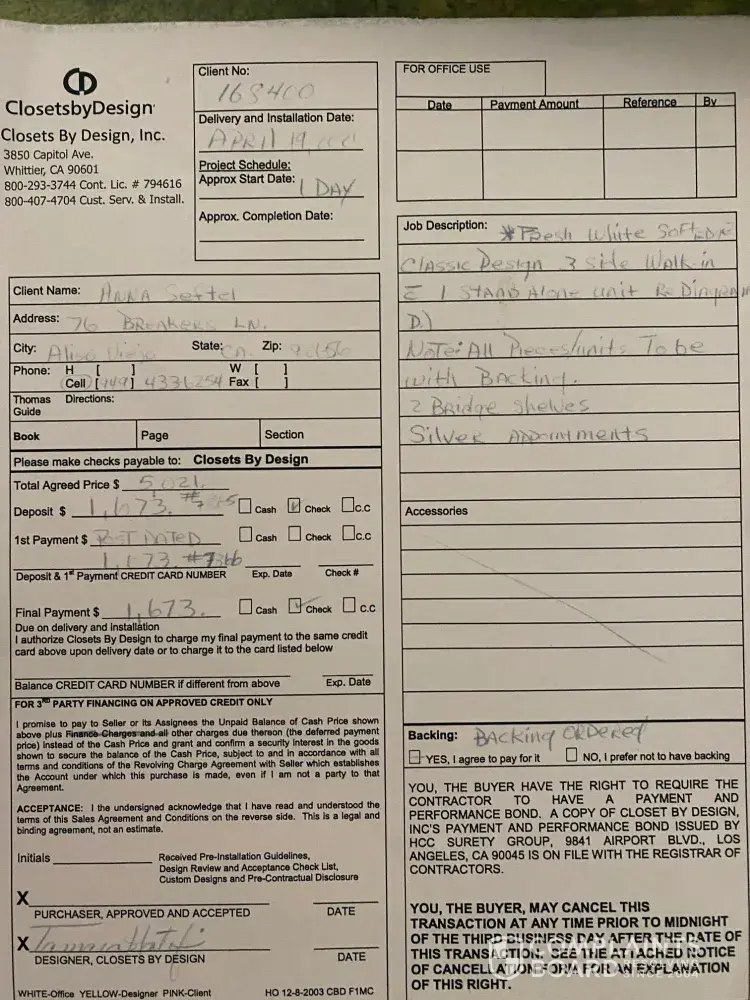 ClosetsbyDesign
Closets By Design, Inc.
3850 Capitol Ave.
Whittier, CA 90601
800-293-3744 Cont. Lic. # 794616
800-407-4704 Cust. Serv. & Install.
Client No:
168400
Delivery and Installation Date:
APRIL 19,
Project Schedule:
Approx Start Date:
1 DAY
Approx. Completion Date:
FOR OFFICE USE
Date Payment Amount Reference By
Client Name: ANNA Seftel
Address: 76 BREAKERS LN.
City: Aliso Viejo State: CA. Zip:
Phone: H [ ] W [ ]
Cell [949] 4336254 Fax [ ]
Thomas Guide Directions:
Book Page Section
Please make checks payable to: Closets By Design
Total Agreed Price $ 5,021.
Deposit $ 1,673. Cash Check C.C
1st Payment $ POST DATED Cash Check C.C
1,673. #7366
Deposit & 1st Payment CREDIT CARD NUMBER Exp. Date Check #
Final Payment $ 1,673. Cash Check C.C
Due on delivery and installation
I authorize Closets By Design to charge my final payment to the same credit
card above upon delivery date or to charge it to the card listed below
Balance CREDIT CARD NUMBER if different from above Exp. Date
FOR 3RD PARTY FINANCING ON APPROVED CREDIT ONLY
I promise to pay to Seller or its Assignees the Unpaid Balance of Cash Price shown
above plus Finance Charges and all other charges due thereon (the deferred payment
price) instead of the Cash Price and grant and confirm a security interest in the goods
shown to secure the balance of the Cash Price, subject to and in accordance with all
terms and conditions of the Revolving Charge Agreement with Seller which establishes
the Account under which this purchase is made, even if I am not a party to that
Agreement.
ACCEPTANCE: I the undersigned acknowledge that I have read and understood the
terms of this Sales Agreement and Conditions on the reverse side. This is a legal and
binding agreement, not an estimate.
Initials Received Pre-Installation Guidelines,
Design Review and Acceptance Check List,
Custom Designs and Pre-Contractual Disclosure
X
PURCHASER, APPROVED AND ACCEPTED DATE
X
DESIGNER, CLOSETS BY DESIGN DATE
WHITE-Office YELLOW-Designer PINK-Client HO 12-8-2003 CBD F1MC
Job Description: *Fresh White Soft
Classic Design 3 side Walk-in
1 STAND Alone unit
D.)
Note: All Pieces/units To be
with Backing.
2 Bridge shelves
Silver APPOINTMENTS
Accessories
Backing: BACKing ORDERed
YES, I agree to pay for it NO, I prefer not to have backing
YOU, THE BUYER, HAVE THE RIGHT TO REQUIRE THE
CONTRACTOR TO HAVE A PAYMENT AND
PERFORMANCE BOND. A COPY OF CLOSET BY DESIGN,
INC'S PAYMENT AND PERFORMANCE BOND ISSUED BY
HCC SURETY GROUP, 9841 AIRPORT BLVD., LOS
ANGELES, CA 90045 IS ON FILE WITH THE REGISTRAR OF
CONTRACTORS.
YOU, THE BUYER, MAY CANCEL THIS
TRANSACTION AT ANY TIME PRIOR TO MIDNIGHT
OF THE THIRD BUSINESS DAY AFTER THE DATE OF
THIS TRANSACTION. SEE THE ATTACHED NOTICE
OF CANCELLATION FORM FOR AN EXPLANATION
OF THIS RIGHT.
COMPLAINTS
BOARD
SINCE 2004